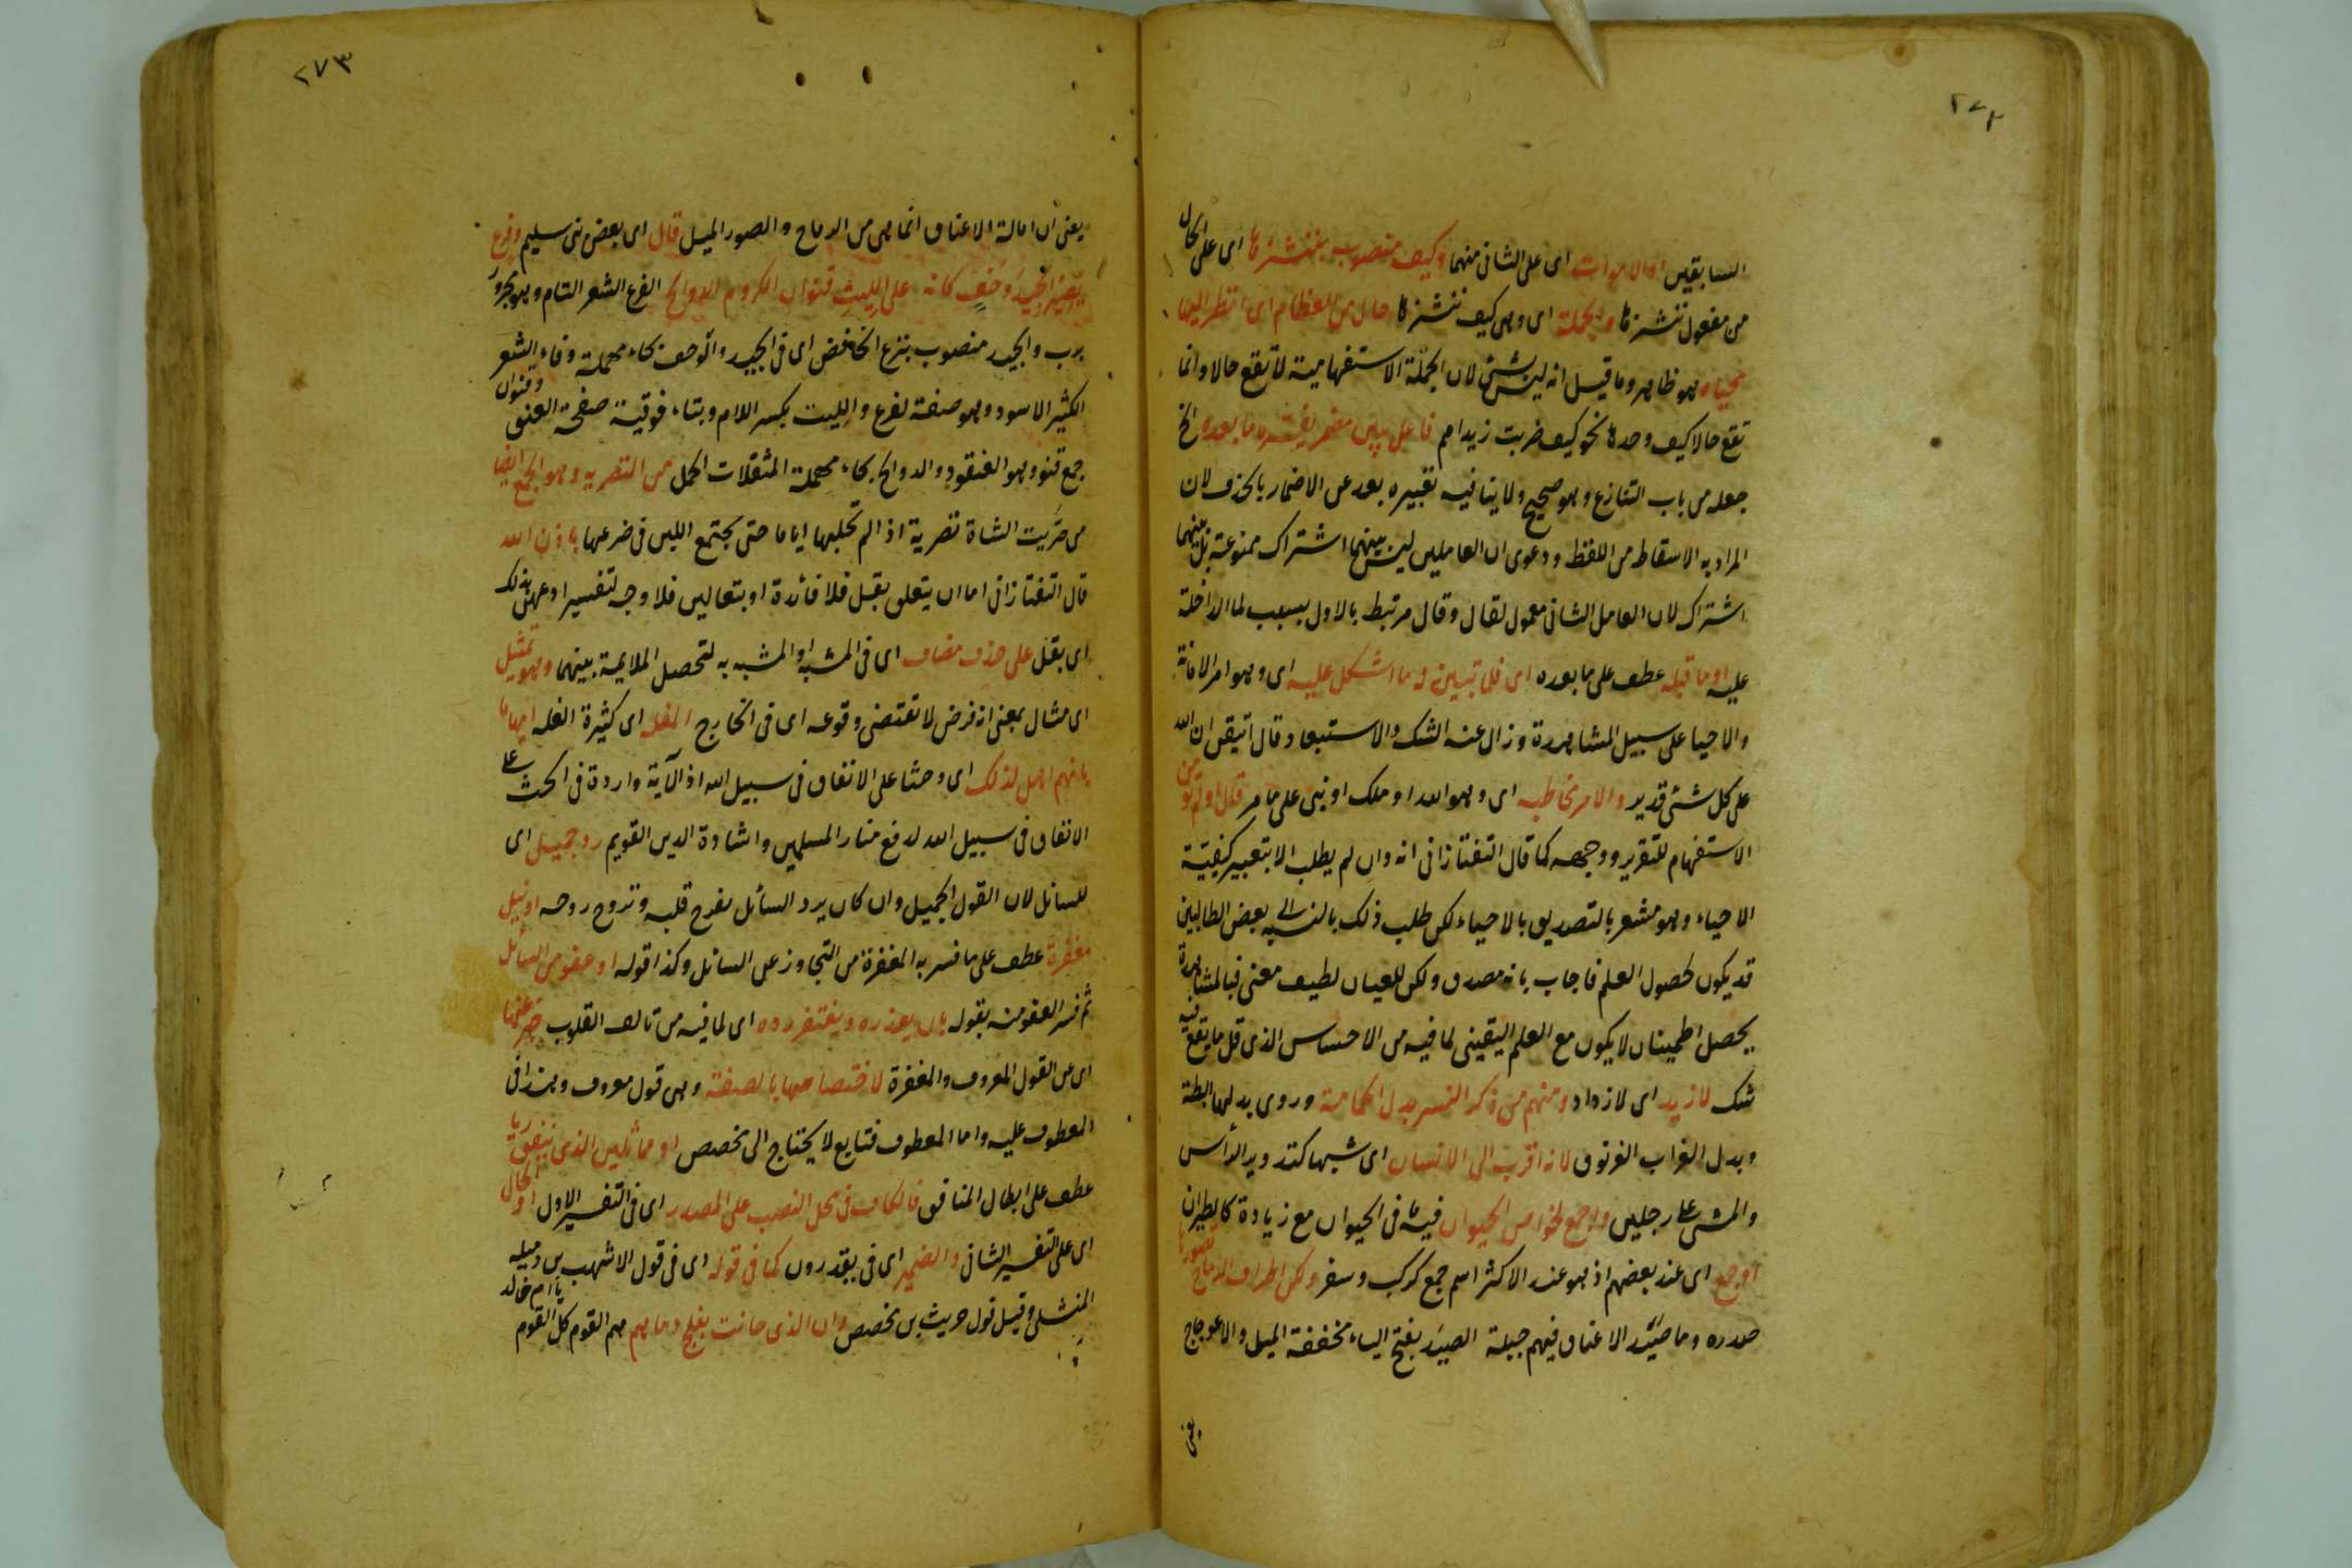 ٢٧٢
السابقين او الاموات اى على الثانى منهما وكيف منصوب بننشزها اى على الحال
من مفعول ننشزها والجملة اى وهى كيف ننشزها حال من العظام اى انظر اليها
محياه وهو ظاهر وما قيل انه ليس بشئ لان الجملة الاستفهامية لا تقع حالا وانما
تقع حالا كيف وحدها نحو كيف ضربت زيدا مم فاعل تبين مضمر يفسره ما بعده الخ
جعله من باب التنازع وهو صحيح ولا ينافيه تعبيره بعد عن الاضمار بالحذف لان
المراد به الاسقاط من اللفظ ودعوى ان العاملين ليس بينهما اشتراك ممنوعة بل بينهما
اشتراك لان العامل الثانى معمول لقال وقال مرتبط بالاول بسبب لما الداخلة
عليه او ما قبله عطف على ما بعده اى فلما تبين له ما اشكل عليه اى وهو امر الاماتة
والاحيا على سبيل المشاهدة وزال عنه الشك والاستبعاد قال اتيقن ان الله
على كل شئ قدير والامر مخاطبه اى وهو الله او ملك او نبى على ما مر قال اولم تؤمن
الاستفهام للتقرير ووجهه كما قال التفتازانى انه وان لم يطلب الا بتعبير كيفية
الاحياء وهو مشعر بالتصديق بالاحياء لكن طلب ذلك بالنسبة الى بعض الطالبين
قد يكون لحصول العلم فاجاب بانه مصدق ولكن للعيان لطيف معنى فبالمشاهدة
يحصل اطمينان لا يكون مع العلم اليقينى لما فيه من الاحساس الذى قل ما يقع فيه
شك لازيد اى لازداد ومنهم من ذكر النسر بدل الحمامة وروى بدلها البطة
وبدل الغراب الغرنوق لانه اقرب الى الانسان اى شبها كتدوير الرأس
والمشى على رجلين واجمع لخواص الحيوان فيه ما فى الحيوان مع زيادة كالطيران
او جمع اى عند بعضهم اذ هو عند الاكثر اسم جمع كركب وسفر ولكن اطراف الرماح تصورها
صدره وما صيد الاعناق فيهم جبلة الصيد بفتح الياء مخففة الميل والاعوجاج
يعنى
٢٧٣
يعنى ان امالة الاعناق انما هى من الرماح والصور الميل قال اى بعض بنى سليم وفرع
يصير الجيد وحف كانه على الليت قنوان الكروم الدوالح الفرع الشعر التام وهو مجرور
برب والجيد منصوب بنزع الخافض اى فى الجيد والوحف بحاء مهملة وفاء الشعر
الكثير الاسود وهو صفة لفرع والليت بكسر اللام وبتاء فوقية صفحة العنق وقنوان
جمع قنو وهو العنقود والدوالح بحاء مهملة المثقلات الحمل من التصرية وهو الجمع ايضا
من صريت الشاة تصرية اذا لم تحلبها اياما حتى يجتمع اللبن فى ضرعها باذن الله
قال التفتازانى اما ان يتعلق بقبل فلا فائدة او بتعالين فلا وجه لتفسير ادعهن بذلك
اى بقل على حذف مضاف اى فى المشبه او المشبه به لتحصل الملايمة بينهما وهو تمثيل
اى مثال بمعنى انه فرض لا تقتضى وقوعه اى فى الخارج المغله اى كثيرة الغله ايهاما
بانهم اهل لذلك اى وحثا على الانفاق فى سبيل الله اذ الآية واردة فى الحث على
الانفاق فى سبيل الله لرفع منار المسلمين واشادة الدين القويم رد جميل اى
للسائل لان القول الجميل وان كان يرد السائل يفرح قلبه وتروح روحه او نيل
مغفرة عطف على ما فسر به المغفرة من التجاوز عن السائل وكذا قوله او عفو من السائل
ثم فسر العفو منه بقوله بان يعذره ويغتفر رده اى لما فيه من تالف القلوب خبر عنهما
اى عن القول المعروف والمغفرة لاختصاصها بالصفة وهى قول معروف وهذا فى
المعطوف عليه واما المعطوف فتابع لا يحتاج الى تخصص او مماثلين الذى ينفق رياء
عطف على ابطال المنافق فالكاف فى محل النصب على المصدر اى فى التفسير الاول او الحال
اى على التفسير الثانى والضمير اى فى يقدرون كما فى قوله اى فى قول الاشهب بن رميله
المنشلى وقيل قول حريث بن مخصص وان الذى حانت بفلج دماءهم هم القوم كل القوم يا ام خالد